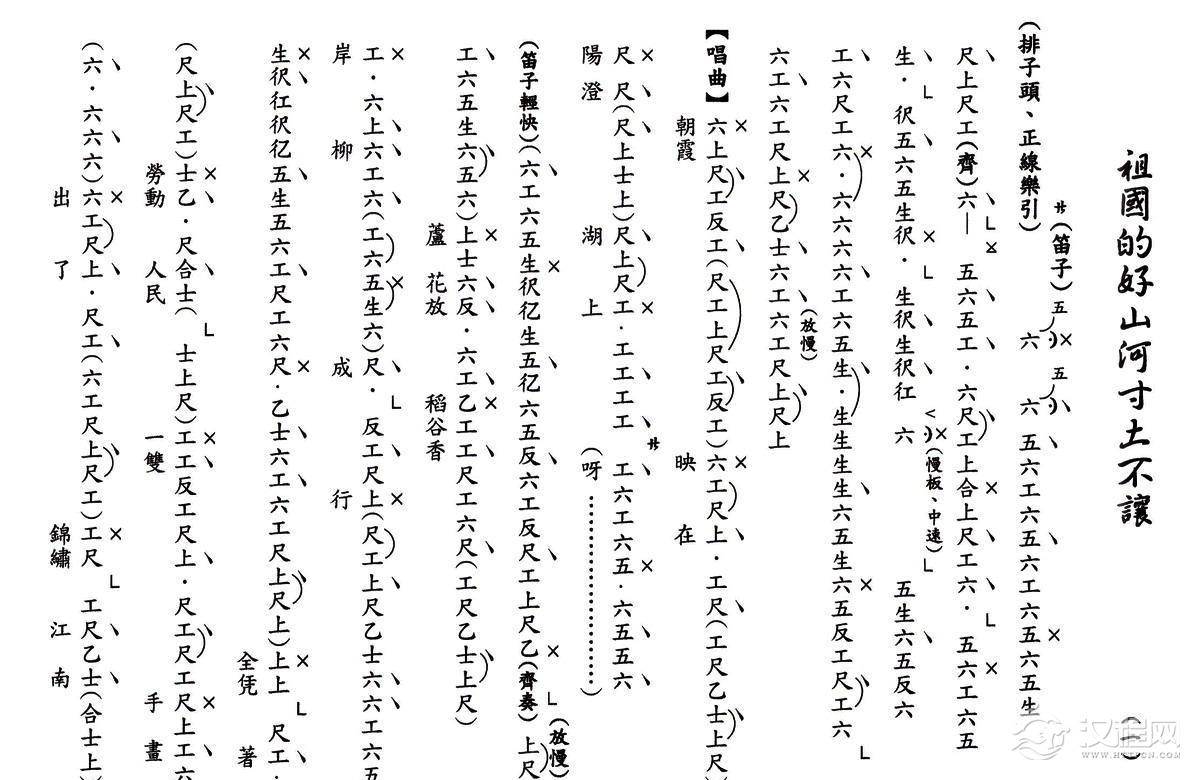 祖國的好山河寸土不讓 (一)
(排子頭、正線樂引) サ(笛子) 五六 五六 五六工六五六工六五六五生
尺上尺工(齊)六— 五六五工·六尺工上合上尺工六· 五六工六五
生·伬五六五生伬·生伬生伬仜 六(慢板、中速) 五生六五反六
工六尺工六·六六六六工六五生·生生生生六五生六五反工尺工六
(放慢)
六工六工尺上尺乙士六工六工尺上尺上
【唱曲】六上尺工反工(尺工上尺工反工)六工尺上·工尺(工尺乙士上尺
朝霞 映 在
尺尺(尺上士上)尺上尺工·工工工サ工六工六五·六五五六
陽澄 湖 上 (呀……………………)
(放慢)
(笛子輕快)(六工六五生伬亿生五亿六五反六工反尺工上尺乙(齊奏)上尺
工六五生六五六)上士六反·六工乙工工尺工六尺(工尺乙士上尺)
蘆花放 稻谷香
工·六上六工六(工六五生六)尺·反工尺上(尺工上尺乙士六六工六五
岸 柳 成 行
生伬仜伬亿五生五六工尺工六尺·乙士六工六工尺上尺上)上上尺工·
全凭 著
(尺上尺工)士乙·尺合士(士上尺)工工反工尺上·尺工尺工尺上工六
勞動 人民 一雙 手 畫
(六·六六六)六工尺上·尺工(六工尺上尺工)工尺工尺乙士(合士上
出 了 錦繡 江 南
汉程网
HTTPCN.COM